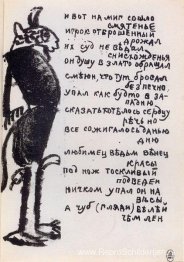 и вот на миг сошло
смятенье
игрок оторошенный
дрожал
их суд не ведал
снисхожденья
он душу в злато обращал
смеюн, что тут бродвал
беспечно
упал как будто в за-
падню
сказать хотелось сердцу
речь но
все сожигалось данью
дню
любимец ведьм венец
красы
под нож тоскливый
подведен
ничком упал он на
весы
а чуб белей
чем лен
www.ReproSchilderijen.com